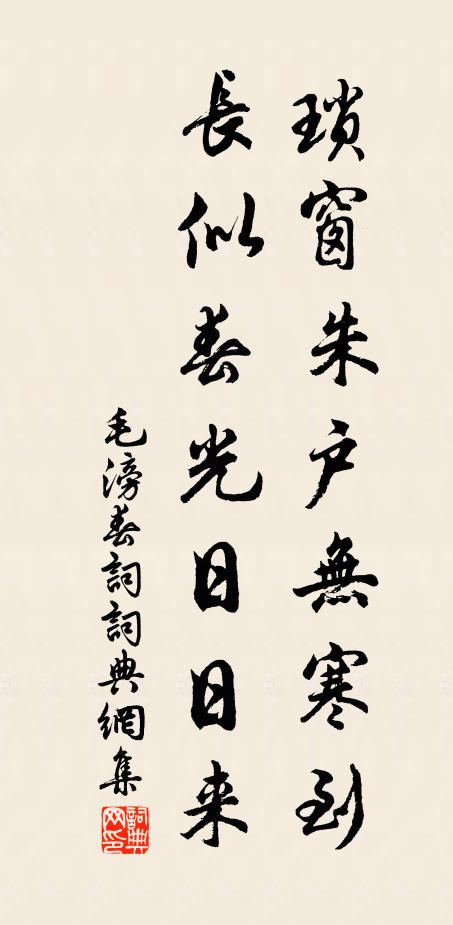 瑣窗朱戶無寒到
長似春光日日来
毛滂春詞詞典網集
詞典网印